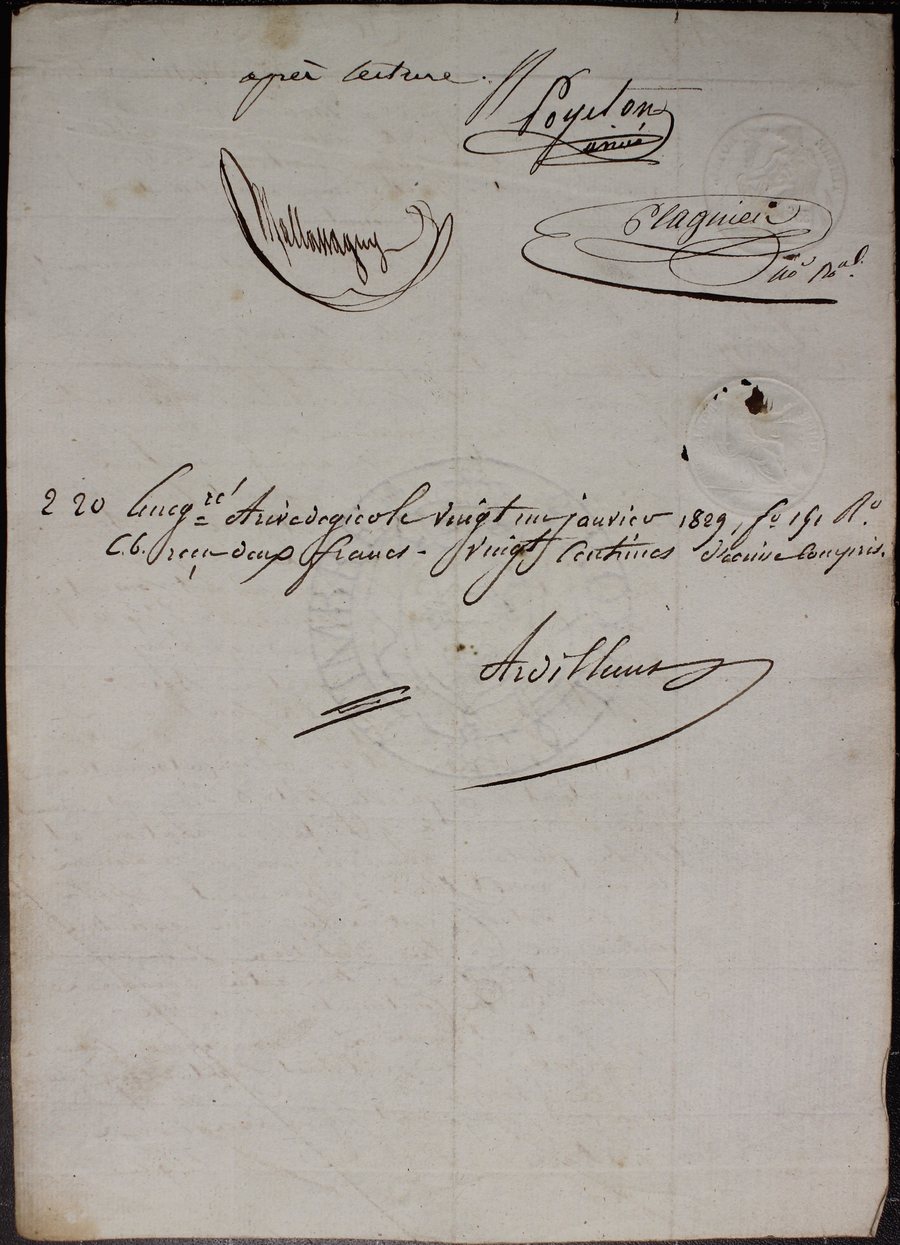 après lecture.
Poyeton
ainé
Mallassagny
Plagnieu
no. Roal.
2 20 Enregré à rivedegier le vingt un janvier 1829, fo 191 Ro
C.6. reçu deux francs - vingt centimes décime compris.
Ardillon